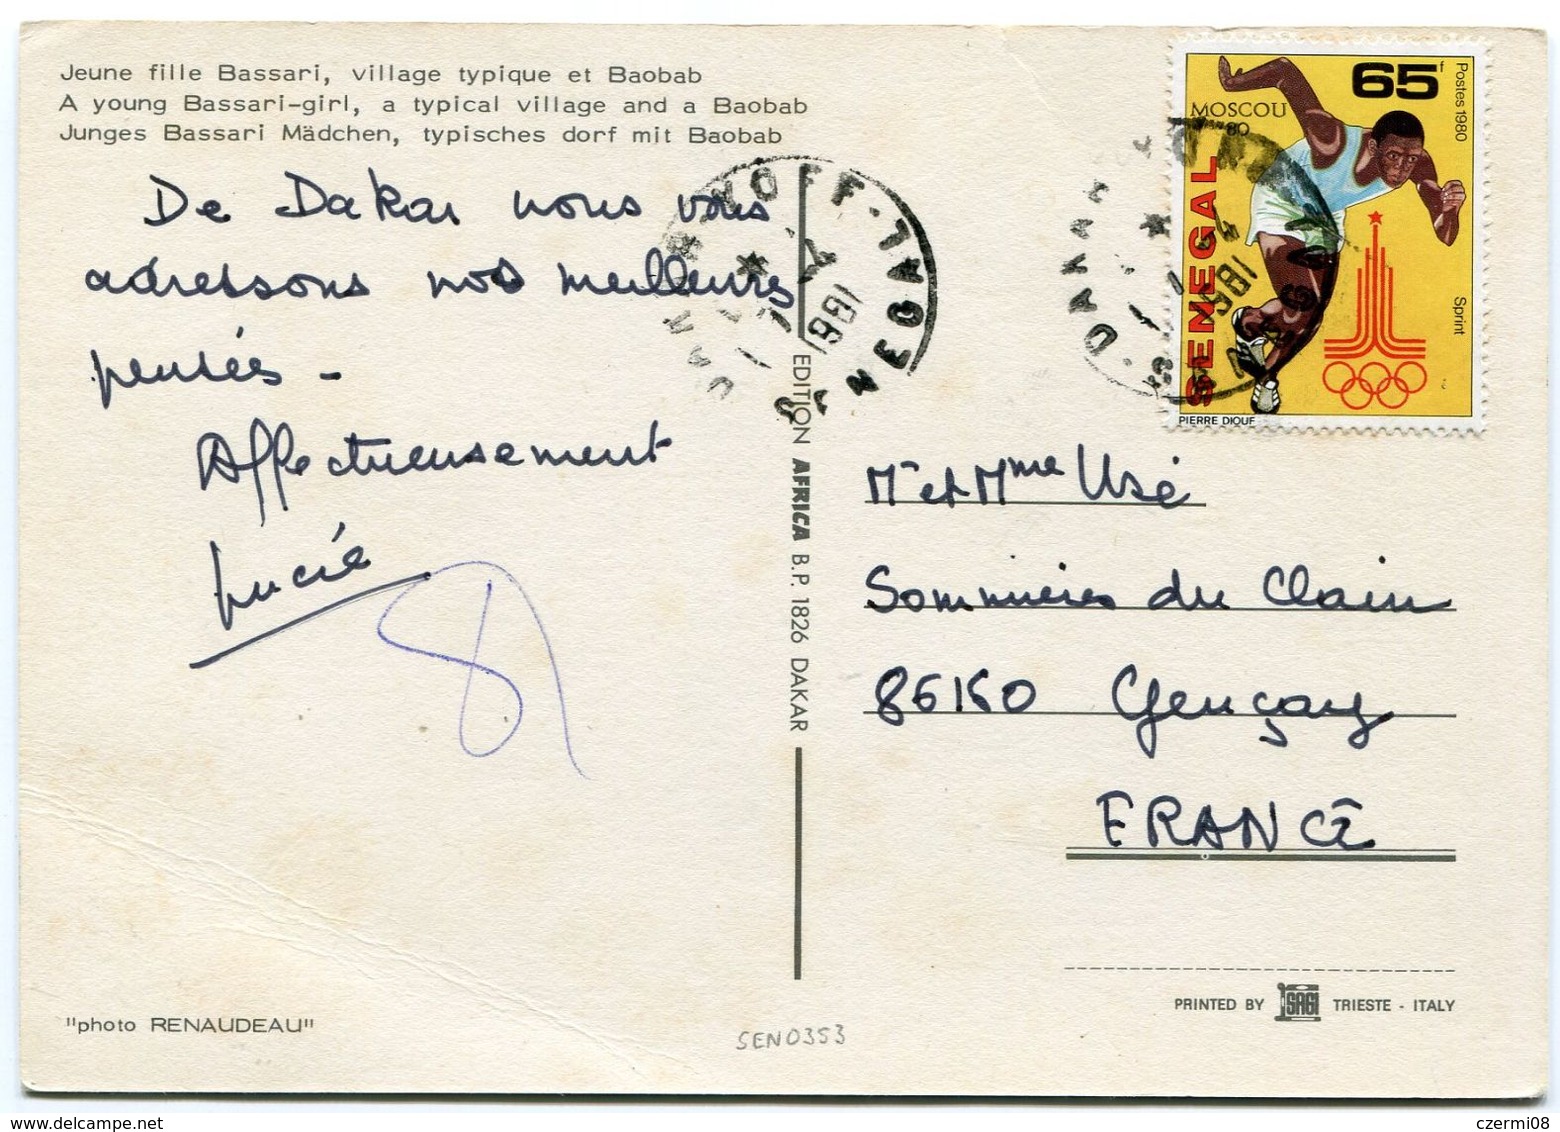 Jeune fille Bassari, village typique et Baobab
A young Bassari-girl, a typical village and a Baobab
Junges Bassari Mädchen, typisches dorf mit Baobab
De Dakar nous vous
adressons nos meilleures
pensées -
Affectueusement
Lucie
EDITION AFRICA B.P. 1826 DAKAR
DAKAR YOFF - SENEGAL
1981
65f
Postes 1980
MOSCOU
80
SENEGAL
Sprint
PIERRE DIOUF
DAKAR
1981
Mr et Mme Usé
Sommières du Clain
86160 Gençay
FRANCE
"photo RENAUDEAU"
SEN0353
PRINTED BY SAGI TRIESTE - ITALY
czermi08